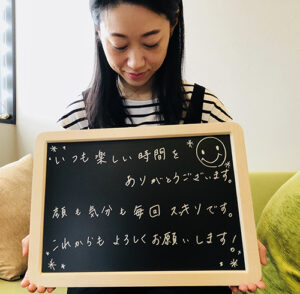 いつも楽しい時間を
ありがとうございます。
顔も気分も毎回スッキリです。
これからもよろしくお願いします!